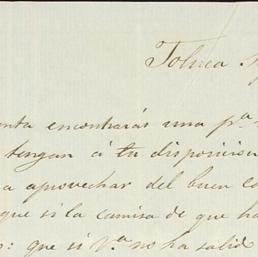 Toluca
enta encontrarás una p.ª
tengan á tu disposicion
a aprovechar del buen
que si la camisa de que ha
: que si V.ª no ha salido